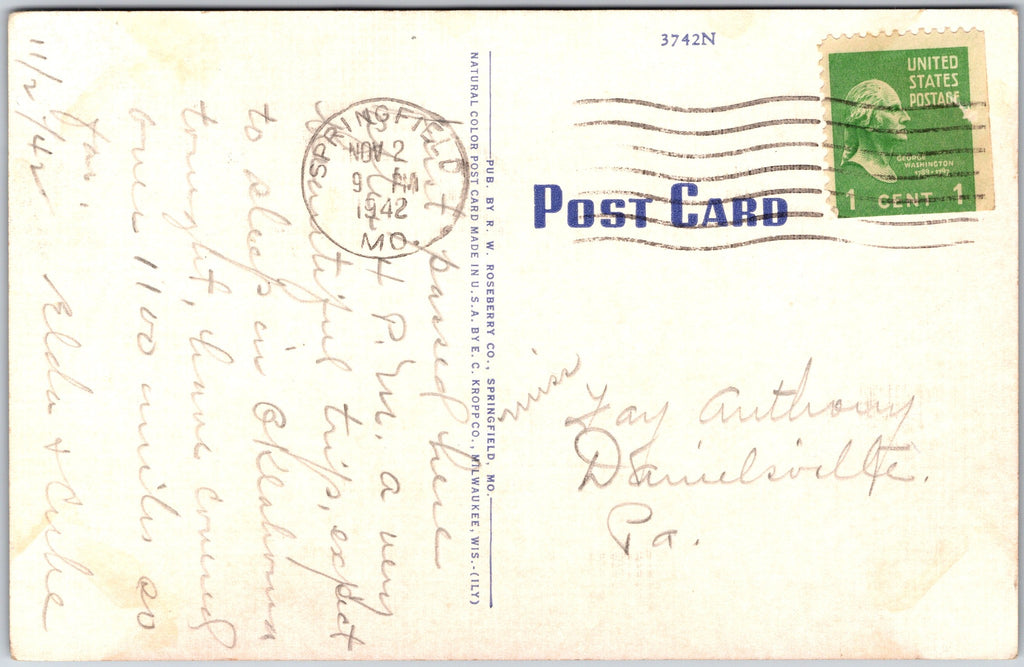 3742N
UNITED
STATES
POSTAGE
GEORGE
WASHINGTON
1 CENT 1
SPRINGFIELD
NOV 2
9 PM
1942
MO.
POST CARD
PUB. BY R. W. ROSEBERRY CO., SPRINGFIELD, MO.
NATURAL COLOR POST CARD MADE IN U.S.A. BY E. C. KROPP CO., MILWAUKEE, WIS.-(ILY)
Just passed here
at 4 P.M. a very
beautiful trip, expect
to sleep in Oklahoma
tonight, have covered
over 1100 miles so
far.
11/2/42 Elda &
miss
Fay Anthony
Danielsville.
Pa.